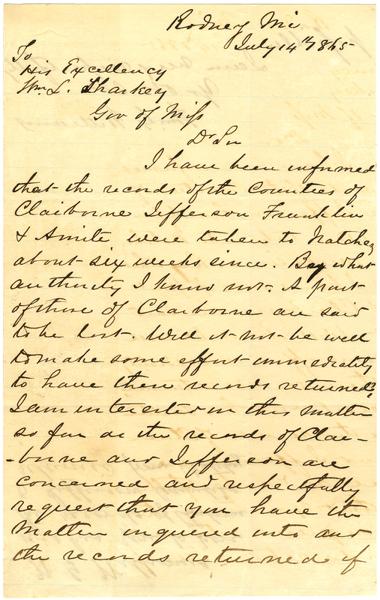 Rodney Mi
July 14th 1865
To
His Excellency
Wm. L. Sharkey
Gov of Miss
Dr Sir
I have been informed
that the records of the Counties of
Claiborne Jefferson Franklin
& Amite were taken to Natchez
about six weeks since. By what
authority I know not. A part
of those of Claiborne are said
to be lost. Will it not be well
to make some effort immediately
to have these records returned?
I am interested in this matter
so far as the records of Clai-
-borne and Jefferson are
concerned and respectfully
request that you have the
matter inquered into and
the records returned if